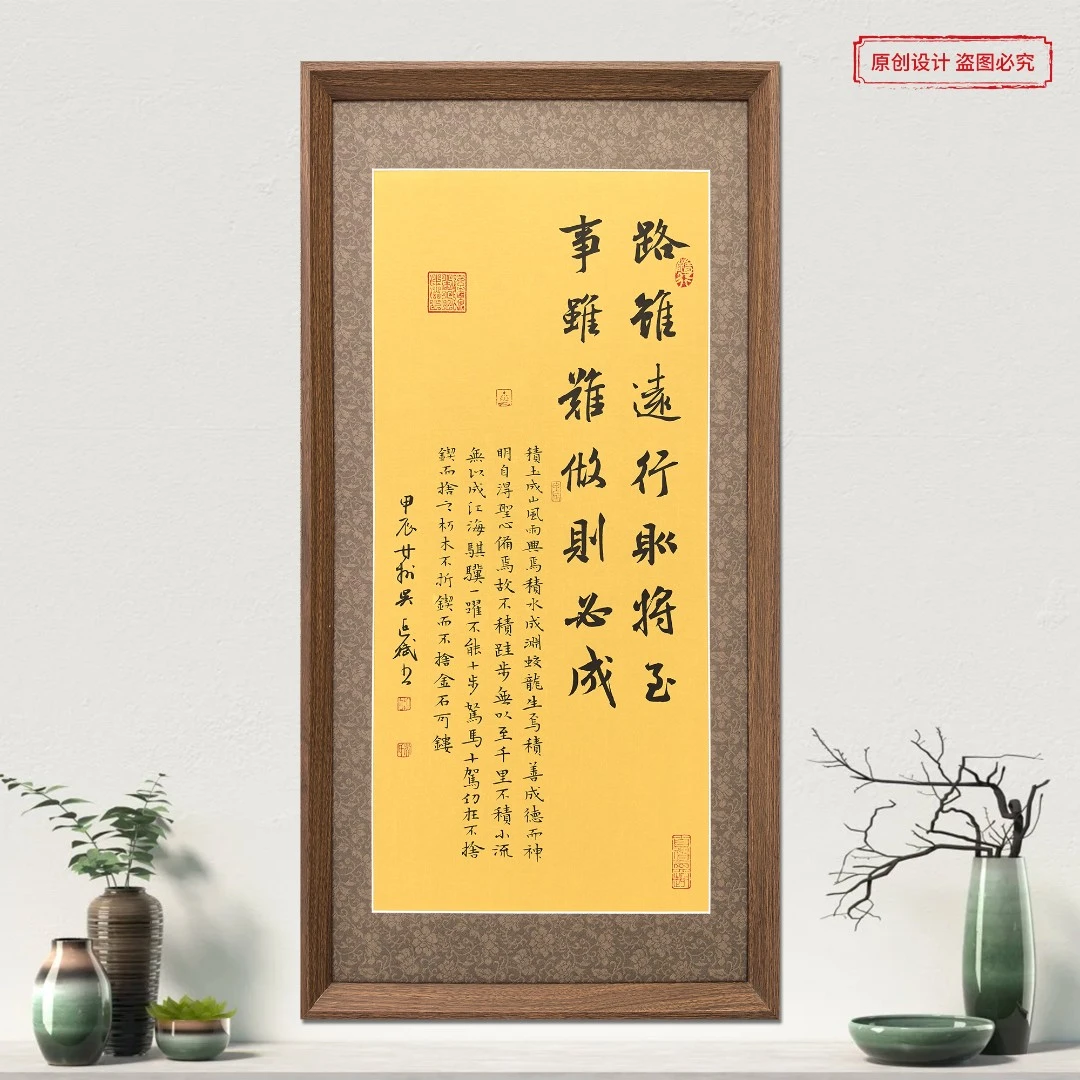 原创设计 盗图必究
路雖遠行則將至
事雖難做則必成
積土成山風雨興焉積水成淵蛟龍生焉積善成德而神
明自得聖心備焉故不積跬步無以至千里不積小流
無以成江海騏驥一躍不能十步駑馬十駕功在不捨
鍥而捨之朽木不折鍥而不捨金石可鏤
甲辰
吳
書